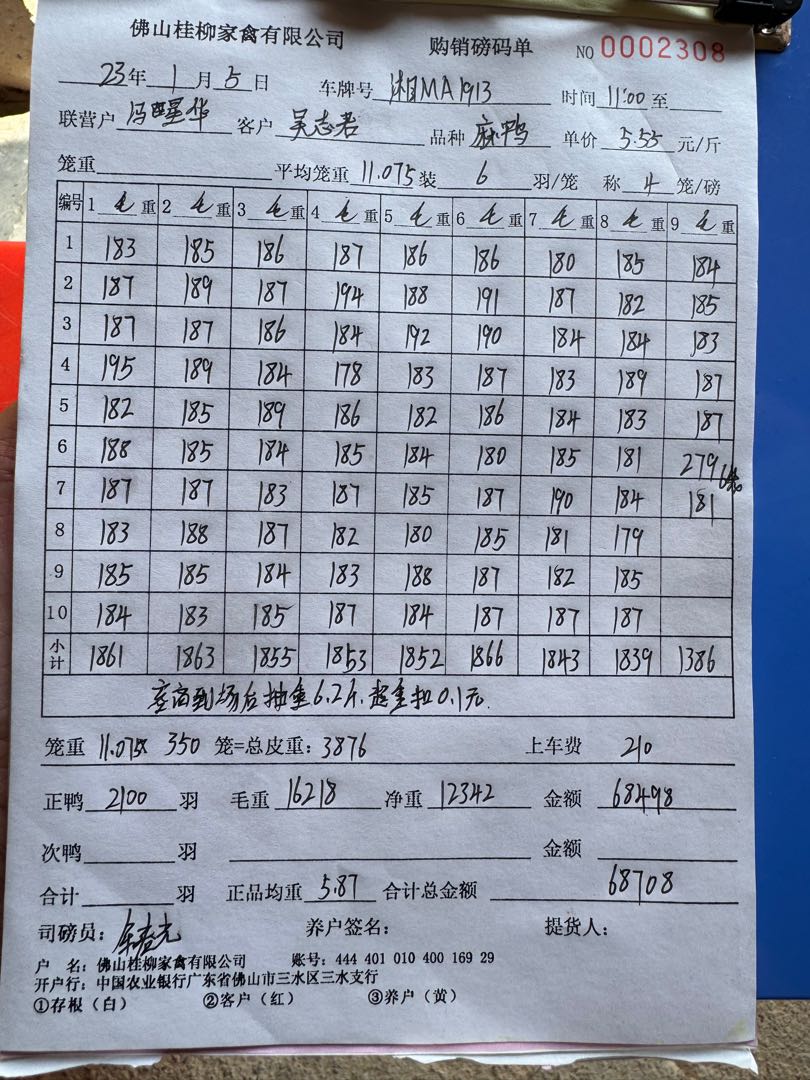 佛山桂柳家禽有限公司 购销磅码单 NO 0002308
23年 1 月 5 日 车牌号 湘MA1913 时间 11:00 至
联营户 冯星华 客户 吴志君 品种 麻鸭 单价 5.55 元/斤
笼重 平均笼重 11.075 装 6 羽/笼 称 4 笼/磅
编号 1 毛重 2 毛重 3 毛重 4 毛重 5 毛重 6 毛重 7 毛重 8 毛重 9 毛重
1 183 185 186 187 186 186 180 185 184
2 187 189 187 194 188 191 187 182 185
3 187 187 186 184 192 190 184 184 183
4 195 189 184 178 183 187 183 189 187
5 182 185 189 186 182 186 184 183 187
6 188 185 184 185 184 180 185 181 279 6笼
7 187 187 183 187 185 187 190 184 181
8 183 188 187 182 180 185 181 179
9 185 185 184 183 188 187 182 185
10 184 183 185 187 184 187 187 187
小计 1861 1863 1855 1853 1852 1866 1843 1839 1386
到场后抽重6.2斤.超重扣0.1元
笼重 11.075X 350 笼=总皮重: 3876 上车费 210
正鸭 2100 羽 毛重 16218 净重 12342 金额 68498
次鸭 羽 金额
合计 羽 正品均重 5.87 合计总金额 68708
司磅员: 养户签名: 提货人:
户 名: 佛山桂柳家禽有限公司 账号: 444 401 010 400 169 29
开户行: 中国农业银行广东省佛山市三水区三水支行
①存根（白） ②客户（红） ③养户（黄）